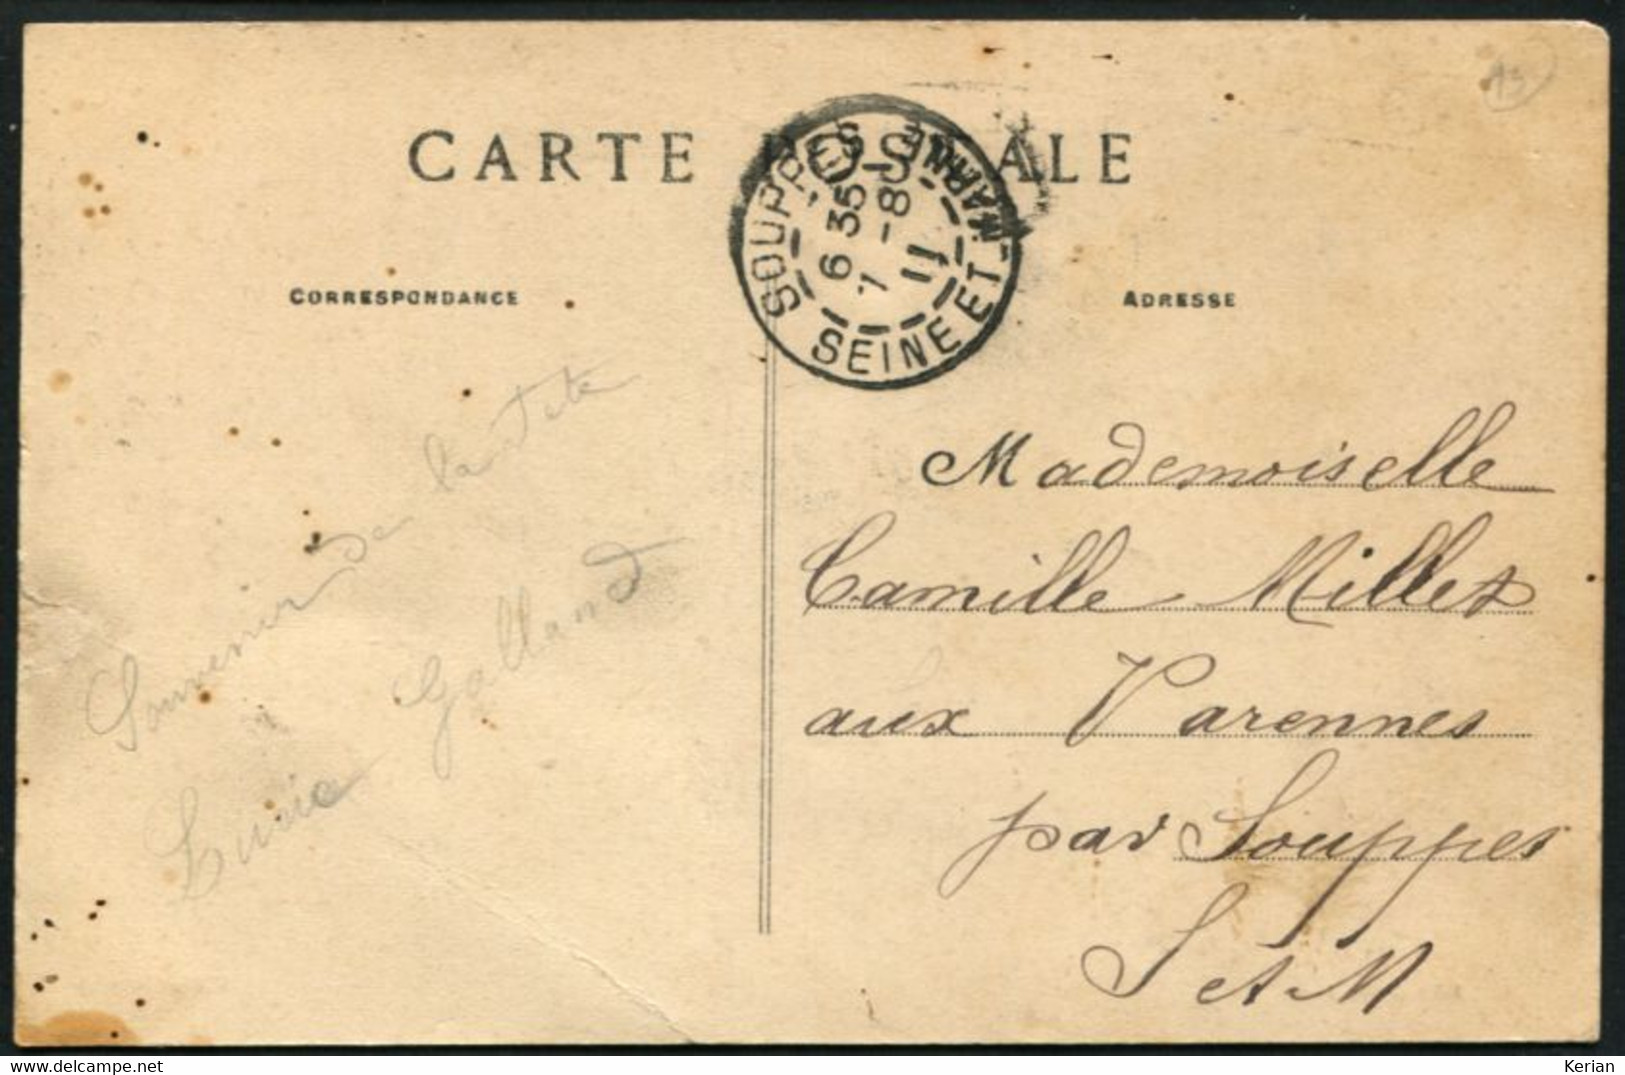 CARTE POSTALE
SOUPPES
SEINE ET-MARNE
6 35
7 -8
11
CORRESPONDANCE
ADRESSE
Souvenir de la fete
Galland
Mademoiselle
Camille Millet
aux Varennes
par Souppes
S et M
Kerian